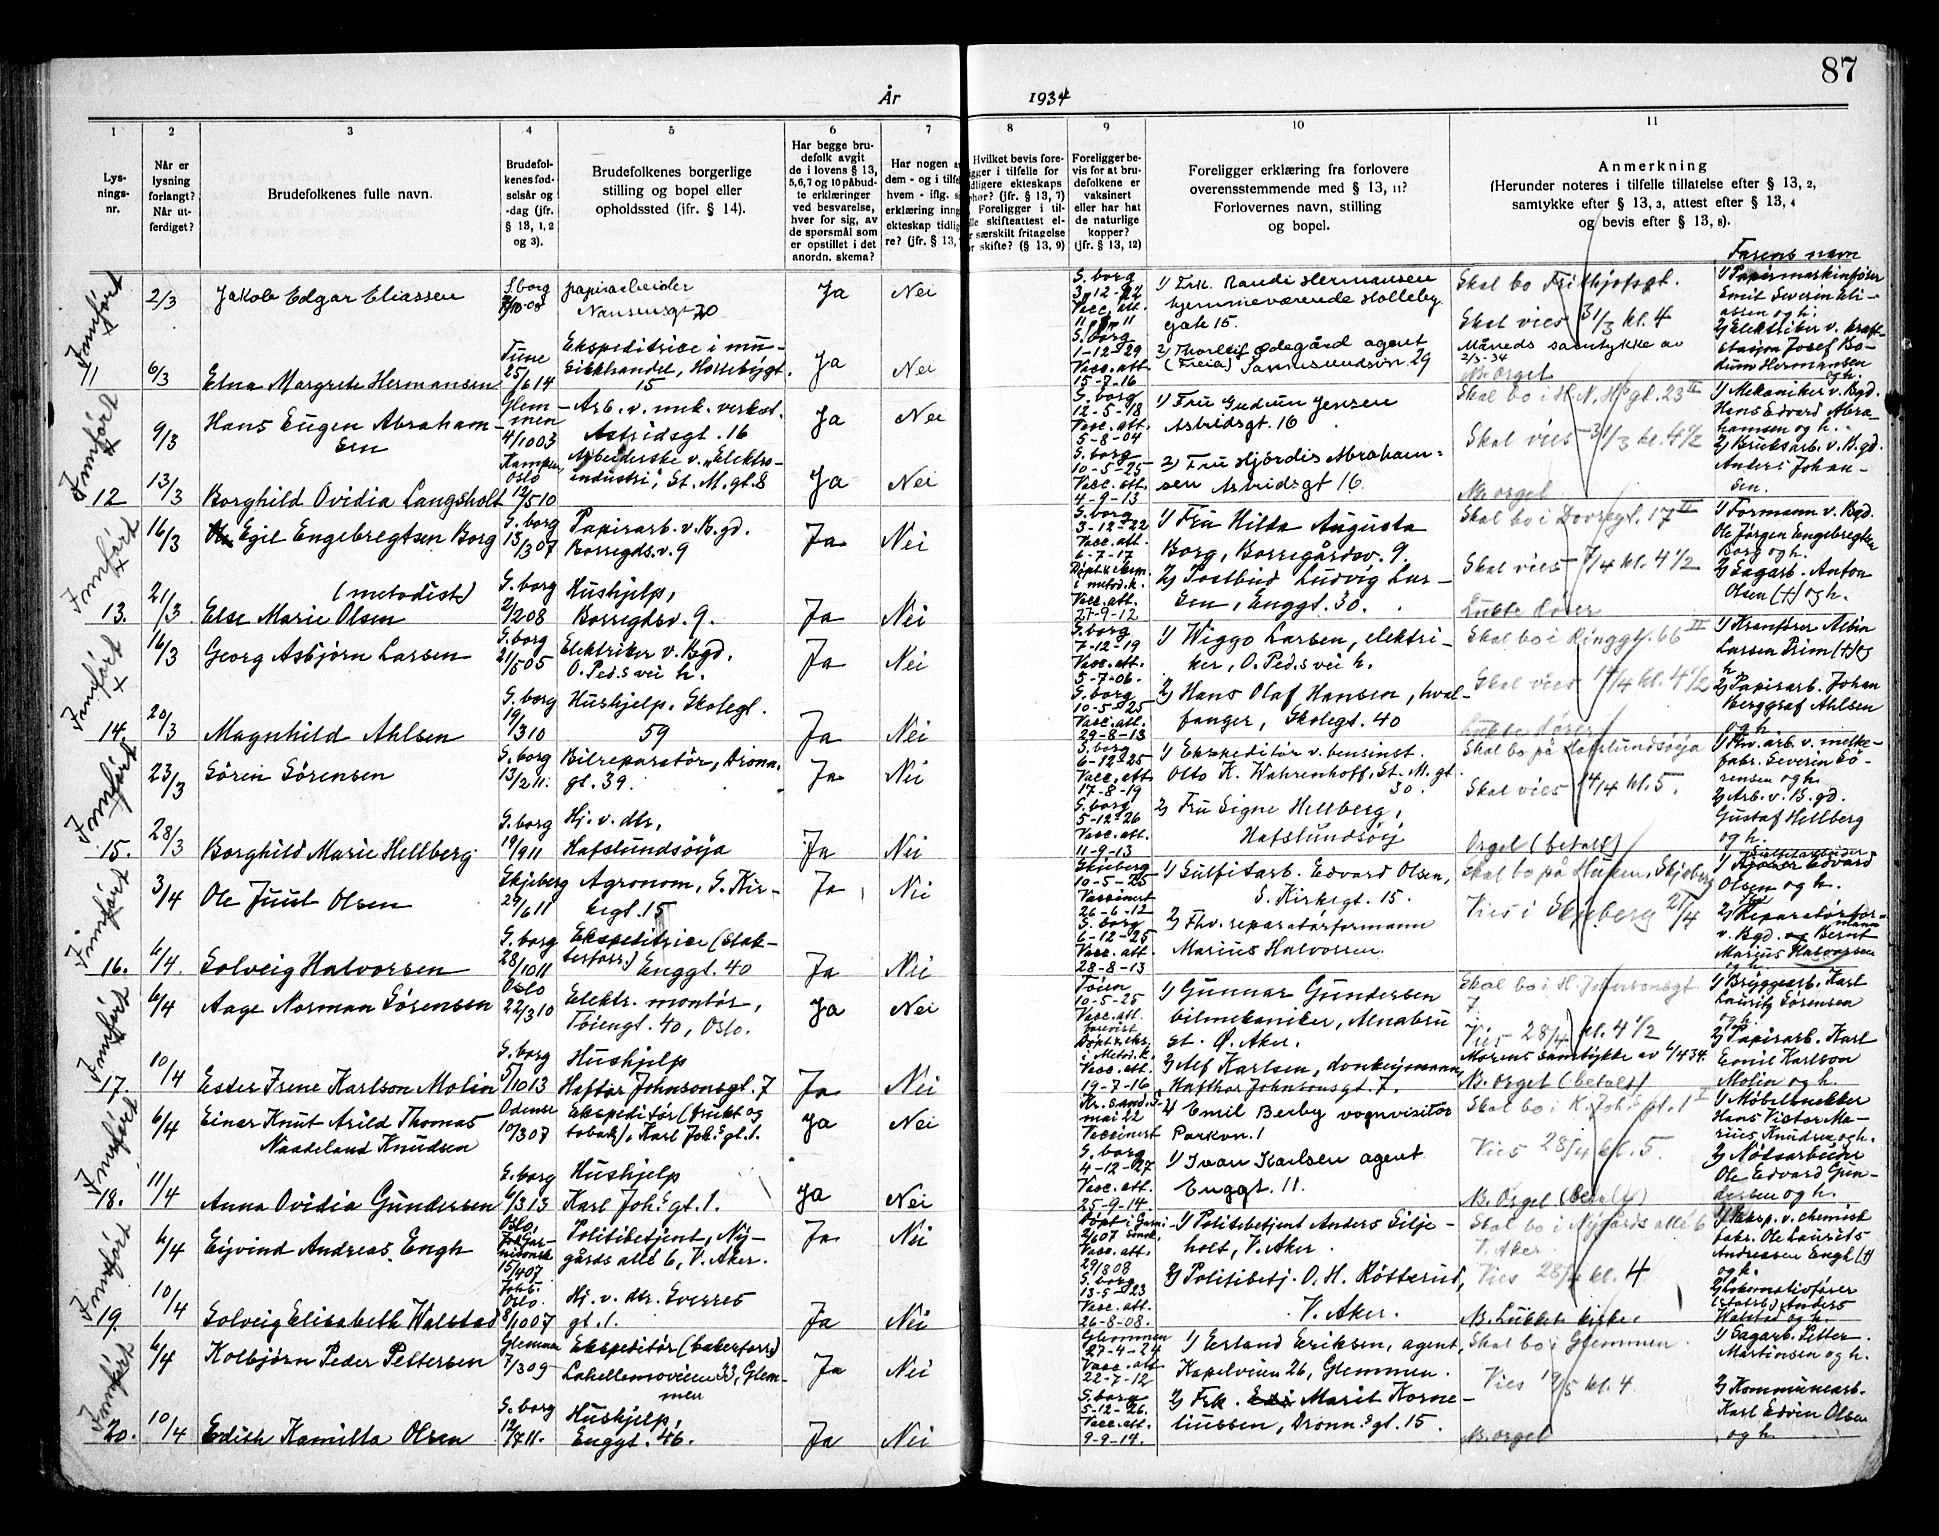 87
År 1934
1 2 3 4 5 6 7 8 9 10 11
Lys-
nings-
nr.
Når er
lysning
forlangt?
Når ut-
ferdiget?
Brudefolkenes fulle navn.
Brudefol-
kenes fød-
selsår og
-dag (jfr.
§ 13, 1, 2
og 3).
Brudefolkenes borgerlige
stilling og bopel eller
opholdssted (ifr. § 14).
Har begge bru-
defolk avgit
de i lovens § 13,
5, 6, 7 og 10 påbud-
te erklæringer
ved besvarelse,
hver for sig, av
de spørsmål som
er opstillet i det
anordn. skema?
Har nogen a
dem - og i tilfe
hvem - iflg. s
erklæring inng
ekteskap tidlig
re? (jfr. § 13,
Hvilket bevis fore-
ligger i tilfelle for
tidligere ekteskaps
ophør? (jfr. § 13, 7)
Foreligger i til-
felle skifteattest el-
r særskilt fritagelse
or skifte? (§ 13, 9)
Foreligger be-
vis for at bru-
defolkene er
vaksinert
eller har hat
de naturlige
kopper?
(jfr. § 13, 12)
Foreligger erklæring fra forlovere
overensstemmende med § 13, 11?
Forlovernes navn, stilling
og bopel.
Anmerkning
(Herunder noteres i tilfelle tillatelse efter § 13, 2,
samtykke efter § 13, 3, attest efter § 13, 4
og bevis efter § 13, 8).
Farens navn
Innført
11
2/3
Jakob Edgar Eliassen
S.borg
papirarbeider
Nansensgt. 20
Ja
Nei
S.borg
3-12-22
Vacc. att.
1) Frk. Randi Hermansen
hjemmeværende Holleby
gate 15.
Skal bo Fridtjofsgt.
Skal vies 31/3 kl. 4
1) Papirmaskinfører
Emil Severin Eli-
assen og h.
6/3
Elna Margrete Hermansen
Tune
25/6 14
Ekspeditrice i mu-
sikkhandel, Hollebygt.
15
Ja
Nei
S.borg
1-12-29
Vacc. att.
15-7-16
2) Thorleif Ødegård agent
(Freia) Sannesundsvn 29
samtykke av
2/3-34
Nb. Orgel
2) Elektriker v. kraft-
stasjon Josef Bo-
Hermansen
og h.
Innført
12
9/3
Hans Eugen Abraham-
sen
Glem-
men
4/10 03
Arb. v. mek. verkst.
Astridsgt. 16
Ja
Nei
S.borg
12-5-18
Vacc. att.
5-8-04
1) Fru Gudrun Jensen
Astridsgt. 16
Skal bo i H.N.H.gt. 23 II
Skal vies 31/3 kl. 4 1/2
1) Mekaniker v. Bgd.
Hans Edvard Abra-
hamsen og h.
13/3
Borghild Ovidia Langsholt
Kampen,
Oslo
12/5 10
Arbeiderske v. "Elektro-
industri", St. M. gt. 8
Ja
Nei
S.borg
10-5-25
Vacc. att.
4-9-13
2) Fru Hjørdis Abraham-
sen Astridsgt 16.
Nb. orgel
2) Bruksarb. v. B.gd.
Anders Johan-
sen.
Innført
13.
16/3
Egil Engebregtsen Borg
S.borg
13/3 07
Papirarb. v. B.gd.
Borregdsv. 9
Ja
Nei
S.borg
3-12-22
Vacc. att.
6-7-17
1) Fru Hilda Augusta
Borg, Borregårdsv. 9.
Skal bo i Dovregt. 17 II
Skal vies 7/4 kl. 4 1/2
1) Formann v. Bgd.
Ole Jørgen Engebregtsen
Borg og h.
21/3
(metodist)
Else Marie Olsen
S.borg
2/2 08
Hushjelp,
Borregdsv. 9.
Ja
Nei
Døpt
i metod.k.
Vacc. att.
27-9-12
2) Postbud Ludvig Lar-
sen, Enggt. 30.
Lukte dører
2) Sagarb. Anton
Olsen (+) og h.
Innført
14.
16/3
Georg Asbjørn Larsen
S.borg
21/5 05
Elektriker v. Bgd.
O. Ped.s vei h.
Ja
Nei
S.borg
7-12-19
Vacc. att.
5-7-06.
1) Wiggo Larsen, elektri-
ker, O. Ped.s vei h.
Skal bo i Ringgt. 66 II
Skal vies 14/4 kl. 4 1/2
1) Kranfører Albin
Larsen Prim (+) og
h.
20/3
Magnhild Ahlsen
S.borg
19/3 10
Hushjelp, Skolegt.
59
Ja
Nei
S.borg
10-5-25
Vacc. att.
29-8-13
2) Hans Olaf Hansen, hval-
fanger, Skolegt. 40
Lukte dører
2) Papirarb. Johan
Berggraf Ahlsen
og h.
Innført
15.
23/3
Sören Sörensen
S.borg
13/2 11.
Bilreparatør, Dronn.
gt. 39.
Ja
Nei
S.borg
6-12-25
Vacc. att.
17-8-19
1) Ekspeditør v. bensinst.
Otto K. Wahrenhoff, St. M. gt.
30.
Skal bo på Hafslundsøya
Skal vies 14/4 kl. 5.
1) Fhv. arb. v. melke-
fabr. Severin Sö-
rensen og h.
28/3
Borghild Marie Hellberg
S.borg
19/9 11
Hj. v. dtr,
Hafslundsöya
Ja
Nei
S.borg
5-12-26
Vacc. att.
11-9-13
2) Fru Signe Hellberg,
Hafslundsöy
Orgel (betalt)
2) Arb. v. B.gd.
Gustaf Hellberg
og h.
Innført
16.
3/4
Ole Juul Olsen
Skjeberg
29/6 11
Agronom, S. Kir-
kegt. 15
Ja
Nei
Skjeberg
10-5-25
Vaccinert
26-6-12
1) Sulfitarb. Edvard Olsen,
S. Kirkegt. 15.
Skal bo på Huken, Skjeberg
Vies i Skjeberg 21/4
1) Sulfitarbeider
Edvard
Olsen og h.
6/4.
Solveig Halvorsen
S.borg
28/10 11
Ekspeditrice
Enggt. 40
Ja
Nei
S.borg
6-12-25
Vacc. att.
28-8-13
2) Fhv. reparatørformann
Marius Halvorsen.
2) Reparatørfor-
mann
v. Bgd. Bernt
Marius Halvorsen
og h.
Innført
17.
6/4
Aage Norman Sörensen
Oslo
22/3 10
Elektr. montör,
Töiengt. 40, Oslo.
Ja
Nei
Töien
10-5-25
Vacc. att.
1) Gunnar Gundersen
bilmekaniker, Alnabru
st. Ö. Aker.
Skal bo i H. Johnsonsgt
7.
Vies 28/4 kl. 4 1/2
1) Bryggearb. Karl
Lauritz Sörensen
og h.
10/4
Ester Irene Karlson Molin
S.borg
5/10 13
Hushjelp
Haftor Johnsonsgt. 7
Ja
Nei
i Metod.k.
Vacc. att.
19-7-16
2) Alf Karlsen, donkeymann,
Hafthor Johnsonsgt 7.
Morens samtykke av 6/4 34.
Nb. orgel (betalt)
2) Papirarb. Karl
Emil Karlson
Molin og h.
Innført
18.
6/4
Einar Knut Arild Thomas
Naadeland Knudsen
Odense
10/3 07
Ekspeditør (frukt og
tobak), Karl Joh.s gt. 1.
Ja
Nei
mai 22
Vaccinert
1) Emil Berby vognvisitør
Parkvn. 1
Skal bo i K. Joh.s gt. 1 I
Vies 28/4 kl. 5.
1) Møbelsnekker
Hans Victor Ma-
rius Knudsen og h.
11/4
Anna Ovidia Gundersen
S.borg
6/3 13
Hushjelp
Karl Joh.s gt. 1.
Ja
Nei
S.borg
4-12-27
Vacc. att.
25-9-14.
1) Ivan Karlsen agent
Enggt. 11.
Nb. Orgel (betalt)
Ole Edvard Gun-
dersen og h.
Innført
19.
6/4
Eyvind Andreas Engh
Oslo,
15/4 07.
Politibetjent, Ny-
gårds allé 6, V. Aker.
Ja
Nei
Vacc. att.
29/8 08
1) Politibetjent Anders Silje-
holt, V. Aker.
Skal bo i Nygårds allé 6
V. Aker
Vies 28/4 kl. 4
1) Eksp. v. chemisk
fabr. Ole Laurits
Andreasen Engh (+)
og h.
10/4
Solveig Elisabeth Walstad
Oslo.
8/10 07
Hj. v. dtr. Sverres
gt. 1.
Ja
Nei
S.borg
13-5-23
Vacc. att.
26-8-08.
2) Politibetj. O. H. Røtterud,
V. Aker.
Nb. Lukket kirke.
2) Lokomotivfører
(statsb.) Anders
Walstad og h.
Innført
20.
6/4
Kolbjörn Peder Pettersen
Glemmen
7/3 09
Ekspeditør (bakerforr.)
Lahellemoveien 33, Glem-
men
Ja
Nei
Glemmen
27-4-24
Vacc. att
22-7-12
1) Erland Eriksen, agent,
Kapelveien 26, Glemmen.
Skal bo i Glemmen
Vies 19/5 kl. 4
1) Sagarb. Petter
Martinsen og h.
10/4
Edith Kamilla Olsen
S.borg
12/7 11.
Hushjelp,
Enggt. 46.
Ja
Nei
S.borg
5-12-26.
Vacc. att.
9-9-14.
2) Frk. Marit Korne-
liussen, Dronn.s gt. 15.
Nb. orgel
2) Kommunearb.
Karl Edvin Olsen
og h.